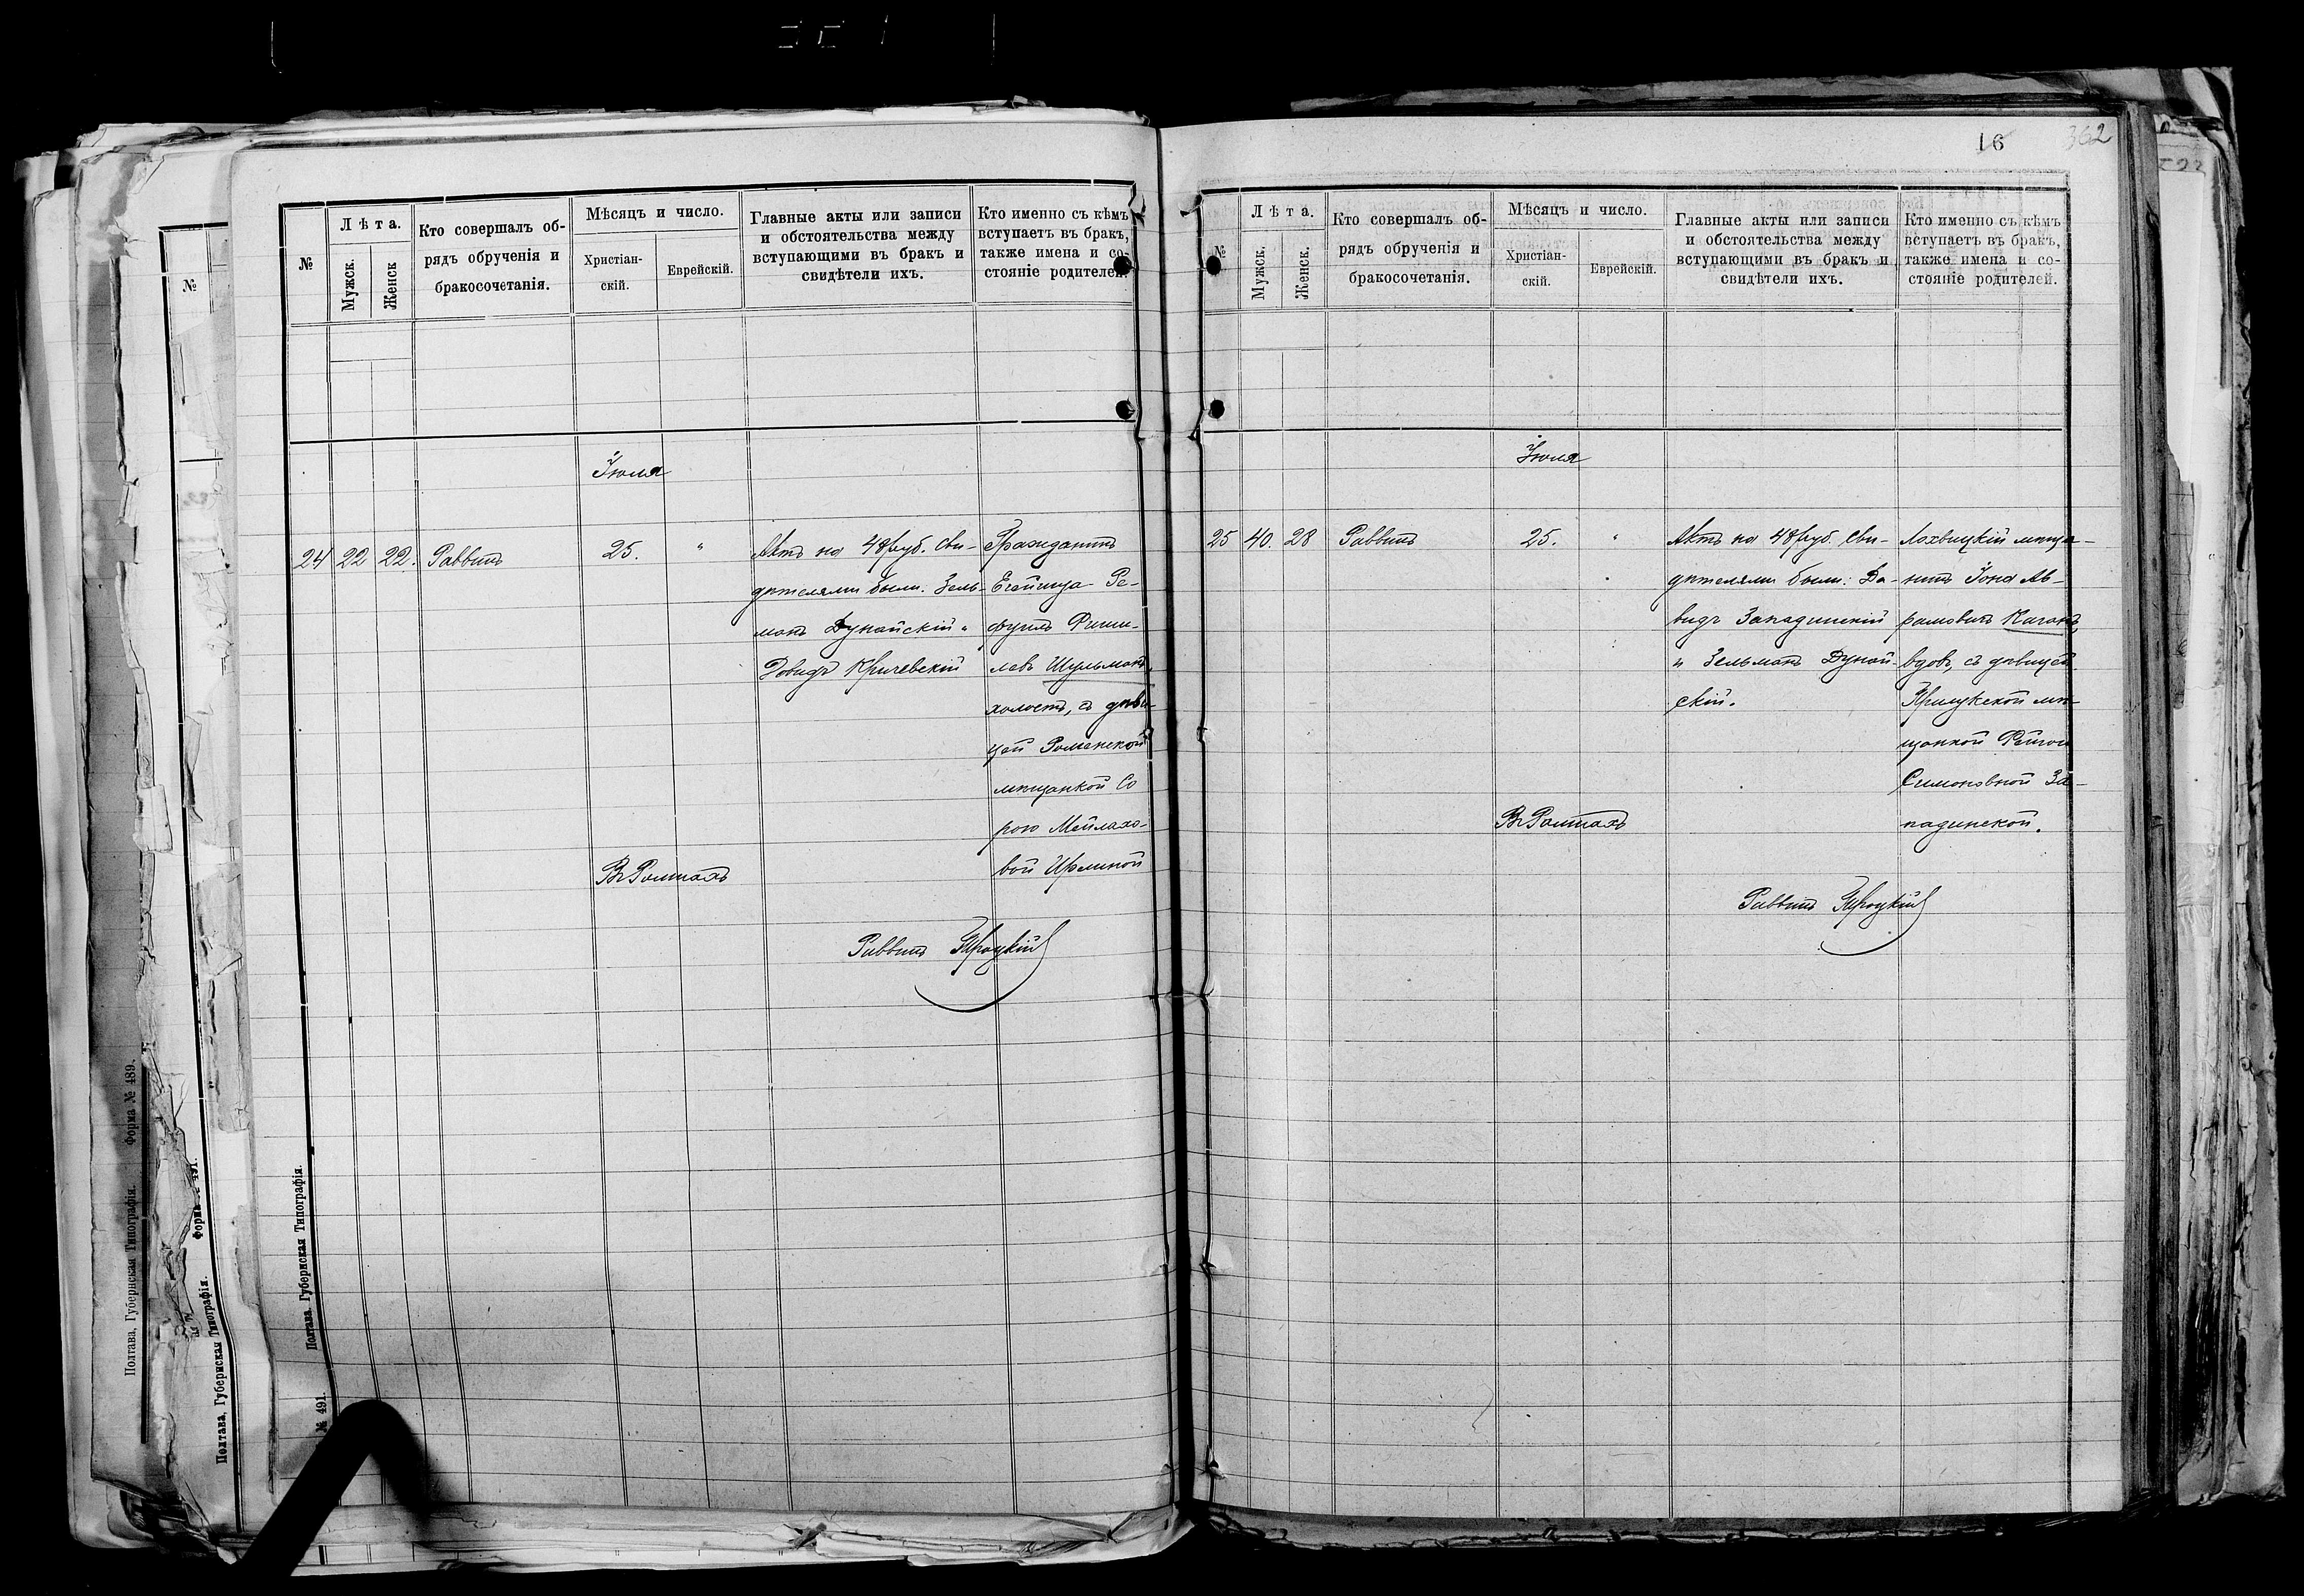 16
362
№
Лѣта.
Мужск.
Женск
Кто совершалъ об-
рядъ обрученія и
бракосочетанія.
Мѣсяцъ и число.
Христіан-
скій.
Еврейскій.
Главные акты или записи
и обстоятельства между
вступающими въ бракъ и
свидѣтели ихъ.
Кто именно съ кѣмъ
вступаетъ въ бракъ,
также имена и со-
стояніе родителей.
Іюля
24 22 22. Раввинъ 25. "
Актъ на 48 руб. Сви-
дѣтелями были: Зель-
манъ Дунайскій и
Довидъ Кричевскій
Гражданинъ
Ре-
Фиши-
левъ Шульманъ,
холостъ, съ дѣви-
цей Роменской
мѣщанкой Со
рою Мейлахо-
вой
Въ Ромнахъ
Раввинъ Троцкій
№
Лѣта.
Мужск.
Женск.
Кто совершалъ об-
рядъ обрученія и
бракосочетанія.
Мѣсяцъ и число.
Христіан-
скій.
Еврейскій.
Главные акты или записи
и обстоятельства между
вступающими въ бракъ и
свидѣтели ихъ.
Кто именно съ кѣмъ
вступаетъ въ бракъ,
также имена и со-
стояніе родителей.
Іюля
25 40. 28 Раввинъ 25. "
Актъ на 48 руб. Сви-
дѣтелями были: Да-
видъ Западинскій
и Зельманъ Дунай-
скій.
Лохвицкій мѣща-
нинъ Іона Аб-
рамовичъ Каганъ,
вдов, съ дѣвицей
Прилукской мѣ-
щанкой
Симоновной За-
падинской.
Въ Ромнахъ
Раввинъ Троцкій
Полтава. Губернская Типографія.
№ 491.
Полтава, Губернская Типографія. Форма № 489.
Полтава, Губернская Типографія.
Форма 491.
№